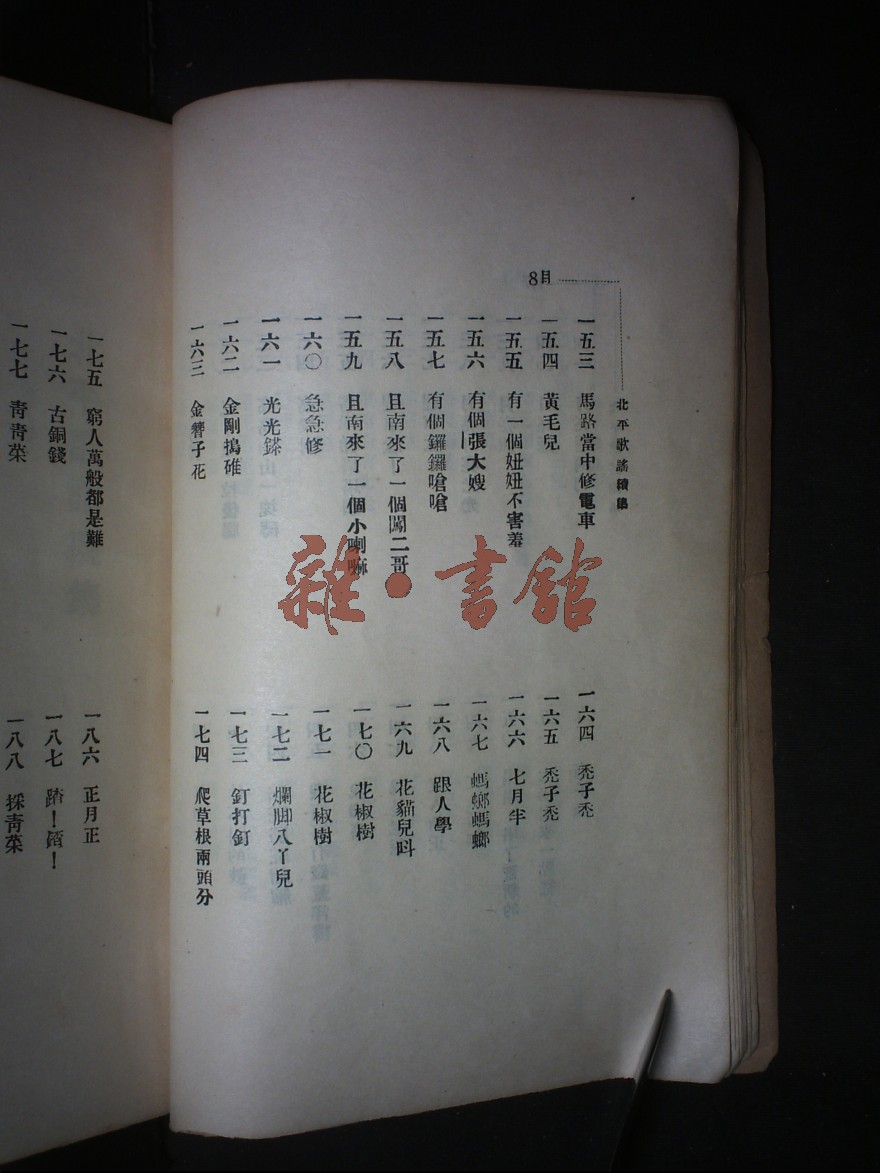 8目
北平歌謠續集
一五三 馬路當中修電車
一五四 黃毛兒
一五五 有一個妞妞不害羞
一五六 有個張大嫂
一五七 有個鑼鑼嗆嗆
一五八 且南來了一個闖二哥
一五九 且南來了一個小喇嘛
一六〇 急急修
一六一 光光鎈
一六二 金剛搗碓
一六三 金簪子花
一六四 禿子禿
一六五 禿子禿
一六六 七月半
一六七 螞螂螞螂
一六八 跟人學
一六九 花貓兒呌
一七〇 花椒樹
一七一 花椒樹
一七二 爛脚八丫兒
一七三 釘打釘
一七四 爬草根兩頭分
一七五 窮人萬般都是難
一七六 古銅錢
一七七 青青菜
一八六 正月正
一八七 踏！踏！
一八八 採青菜
雜·書館